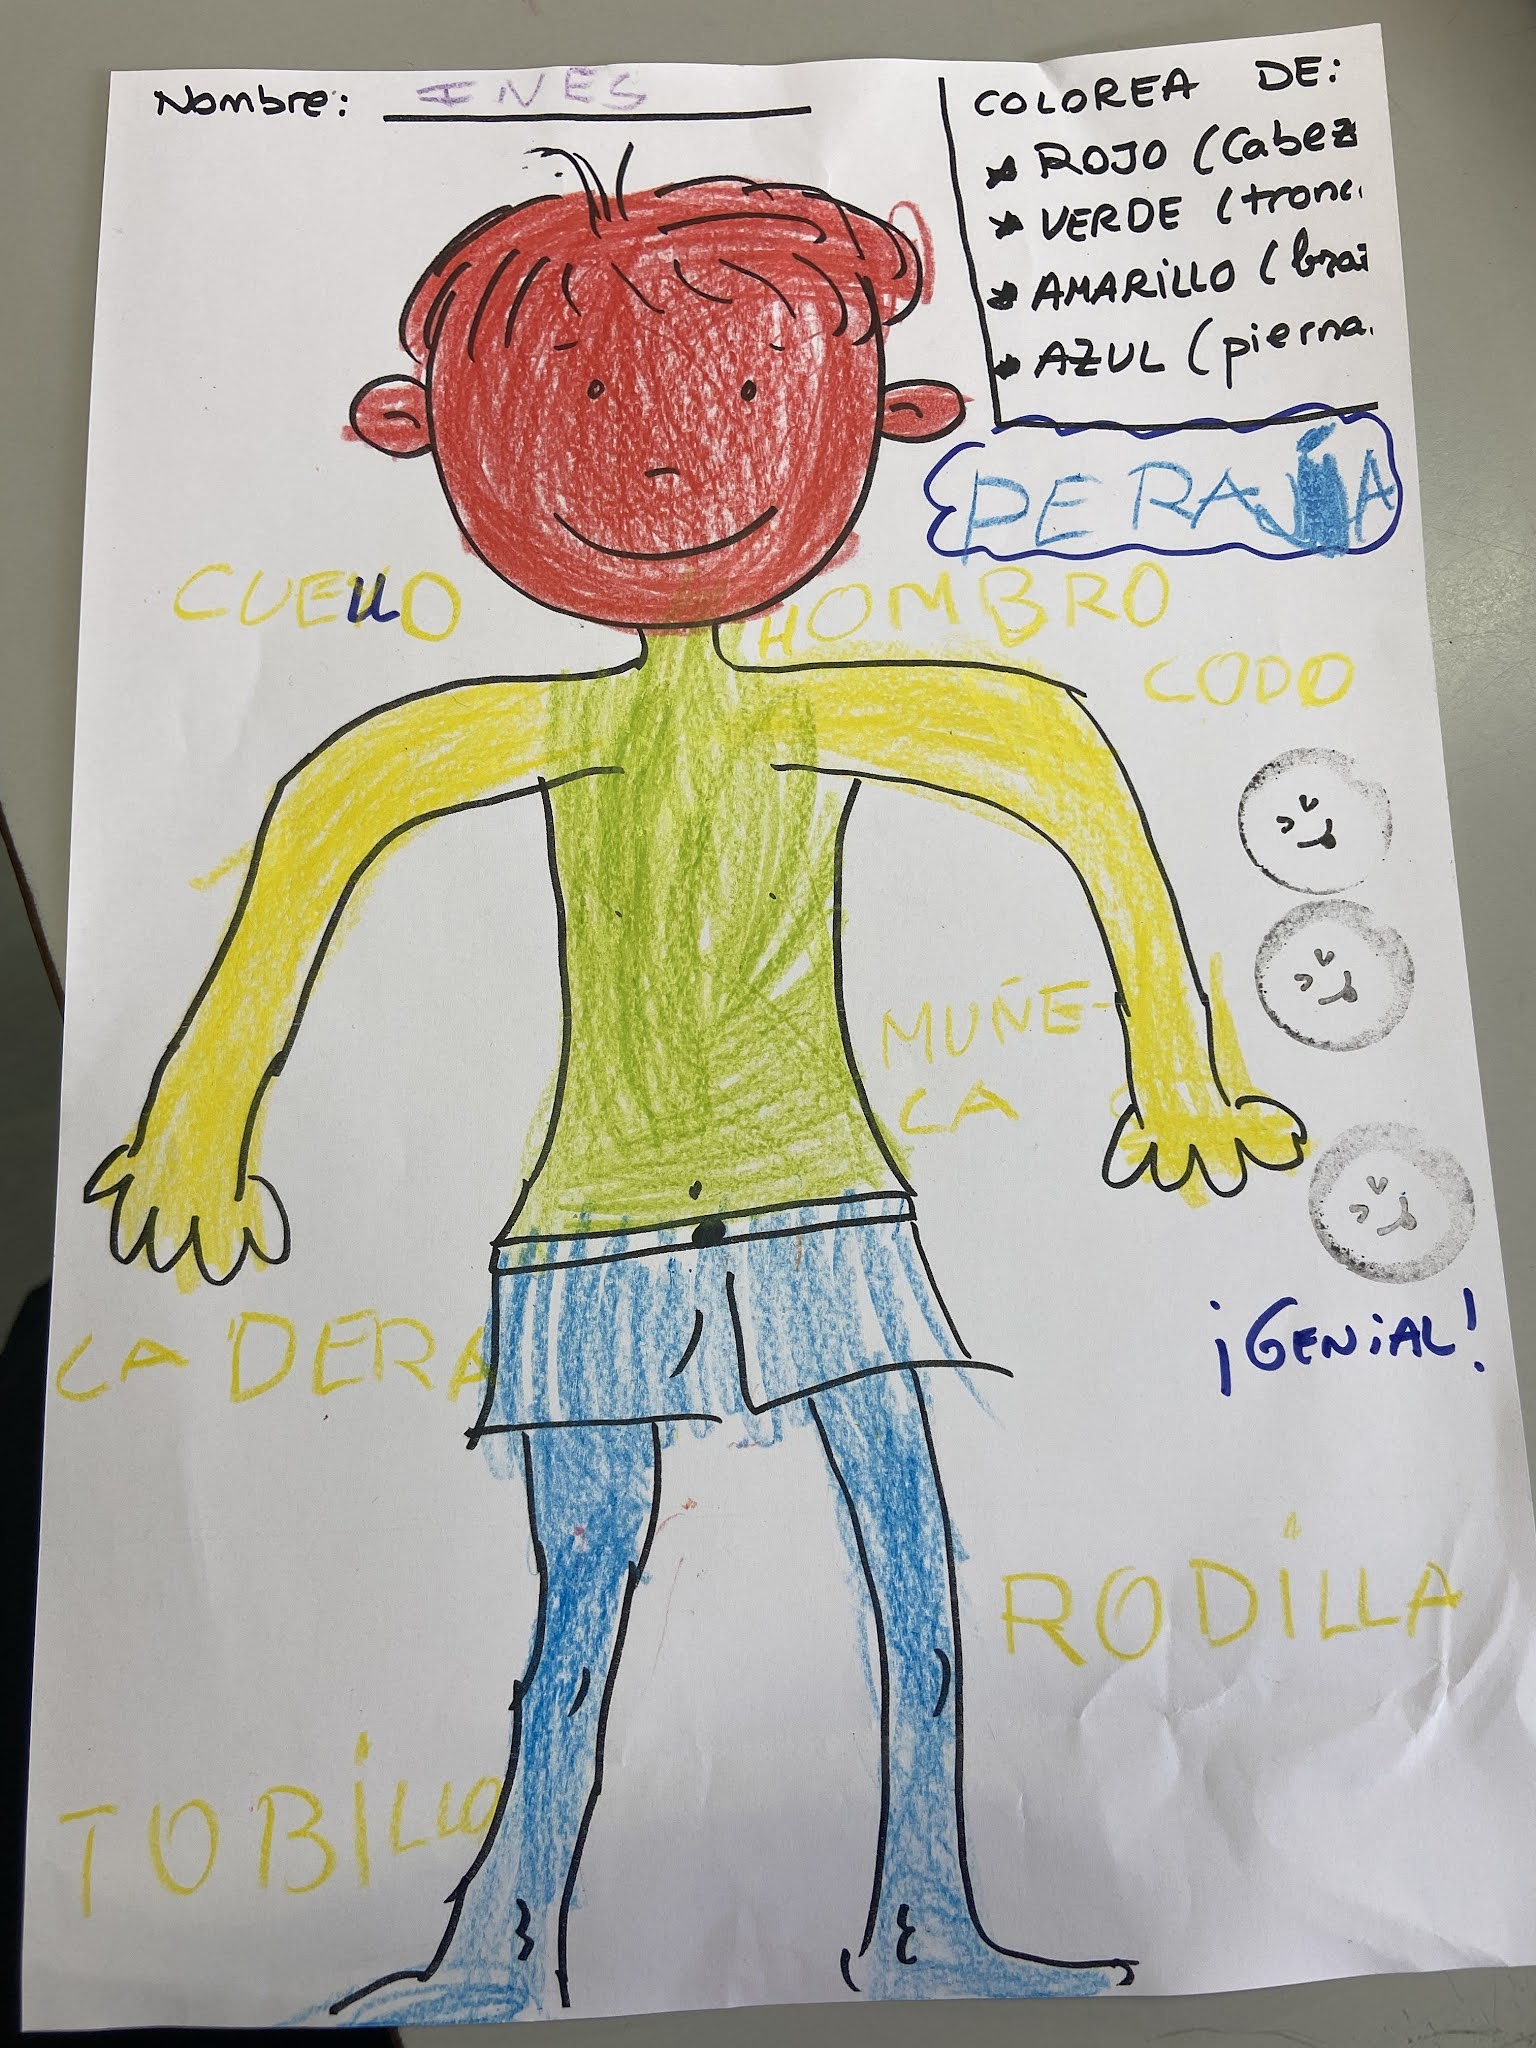 Nombre: INES
COLOREA DE:
ROJO (Cabez
VERDE (tronc
AMARILLO (
AZUL (pierna
CUELLO
HOMBRO
CODO
MUÑE-
CA
CADERA
¡GENIAL!
RODILLA
TOBILLO